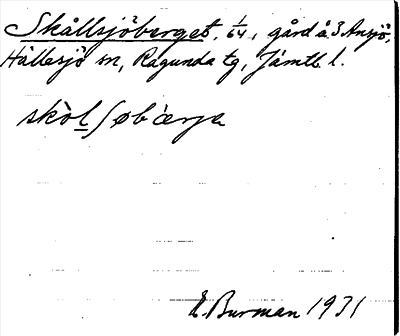 Skållsjöberget, 1/64, gård å 3 Ansjö,
Hällesjö sn, Ragunda tg, Jämtl. l.
skòlʃøbærja
E. Burman 1931